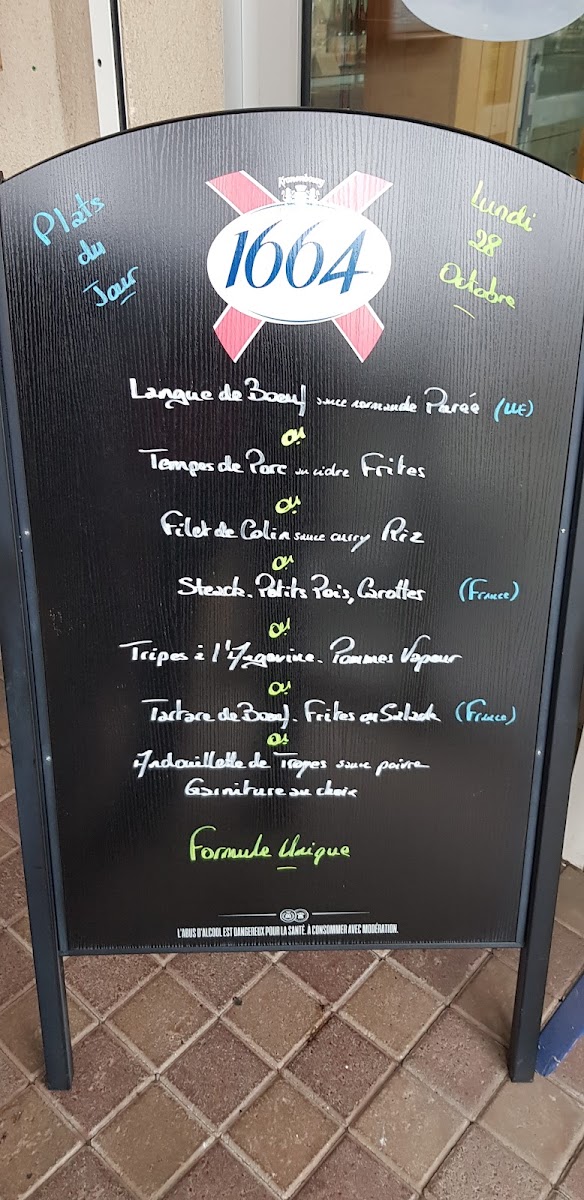 Plats
du
Jour
Lundi
28
Octobre
1664
Langue de Boeuf sauce normande Purée (UE)
ou
Tempes de Porc au cidre Frites
ou
Filet de Colin sauce curry Riz
ou
Steack. Petits Pois, Carottes (France)
ou
Tripes à l'Ancienne. Pommes Vapeur
ou
Tartare de Boeuf. Frites ou Salade (France)
ou
Andouillette de Troyes sauce poivre
Garniture au choix
Formule Unique
L'ABUS D'ALCOOL EST DANGEREUX POUR LA SANTÉ. À CONSOMMER AVEC MODÉRATION.